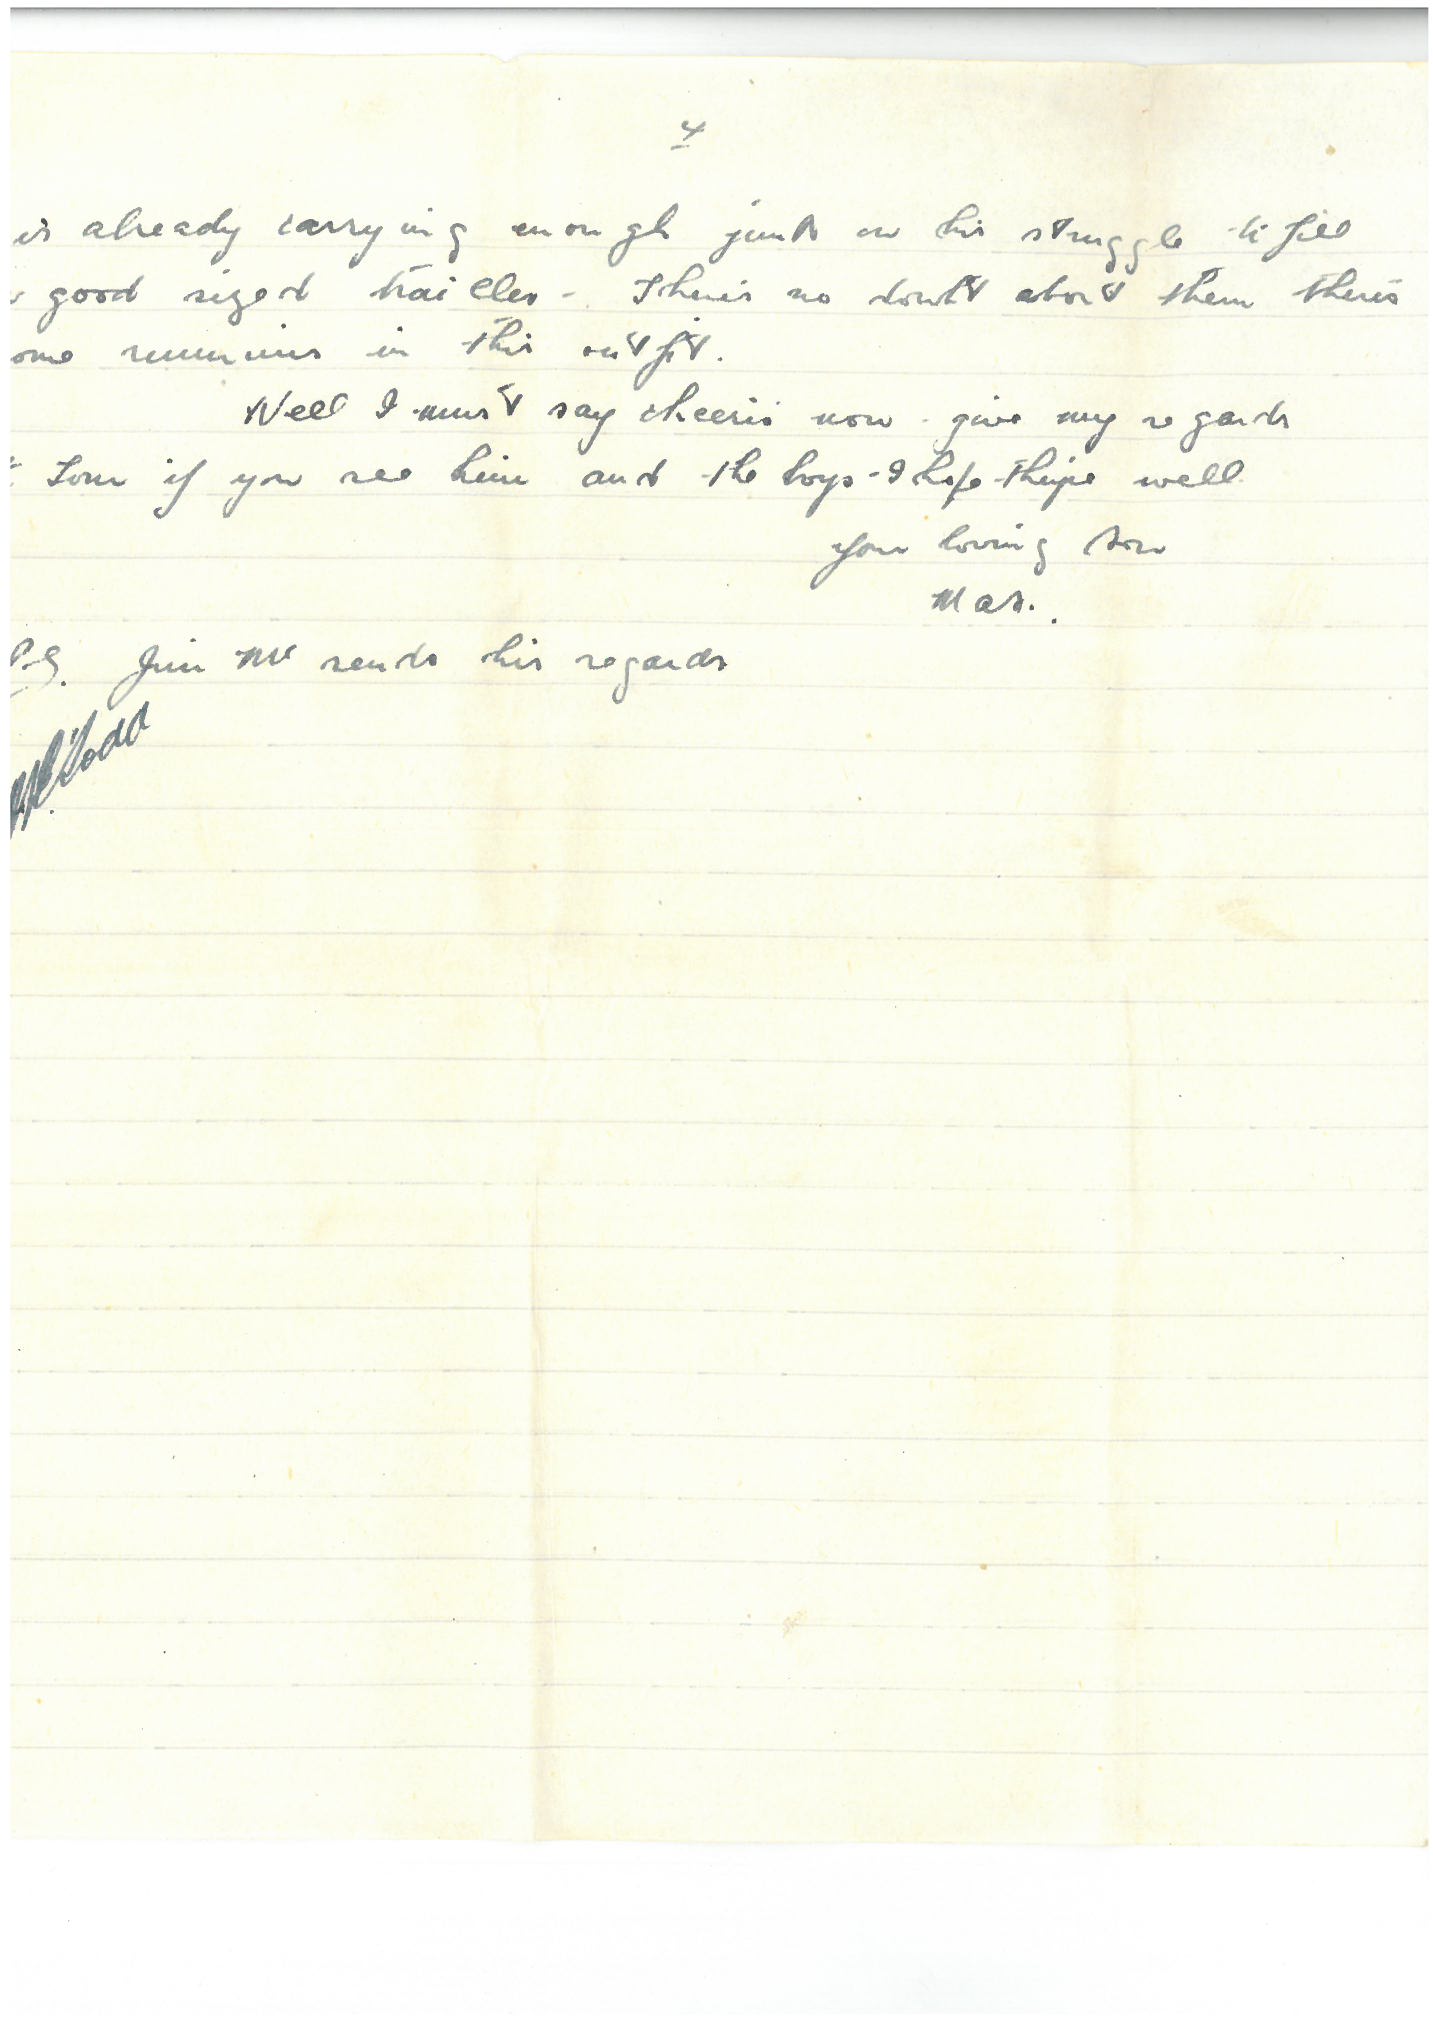 4
is already carrying enough junk on his struggle to fill
good sized trailler - There's no doubt about them there's
ome in this outfit.
Well I must say cheerio now - give my regards
Tom if you see him and the boys - I hope they're well
your loving son
P.S. Jim Mc sends his regards